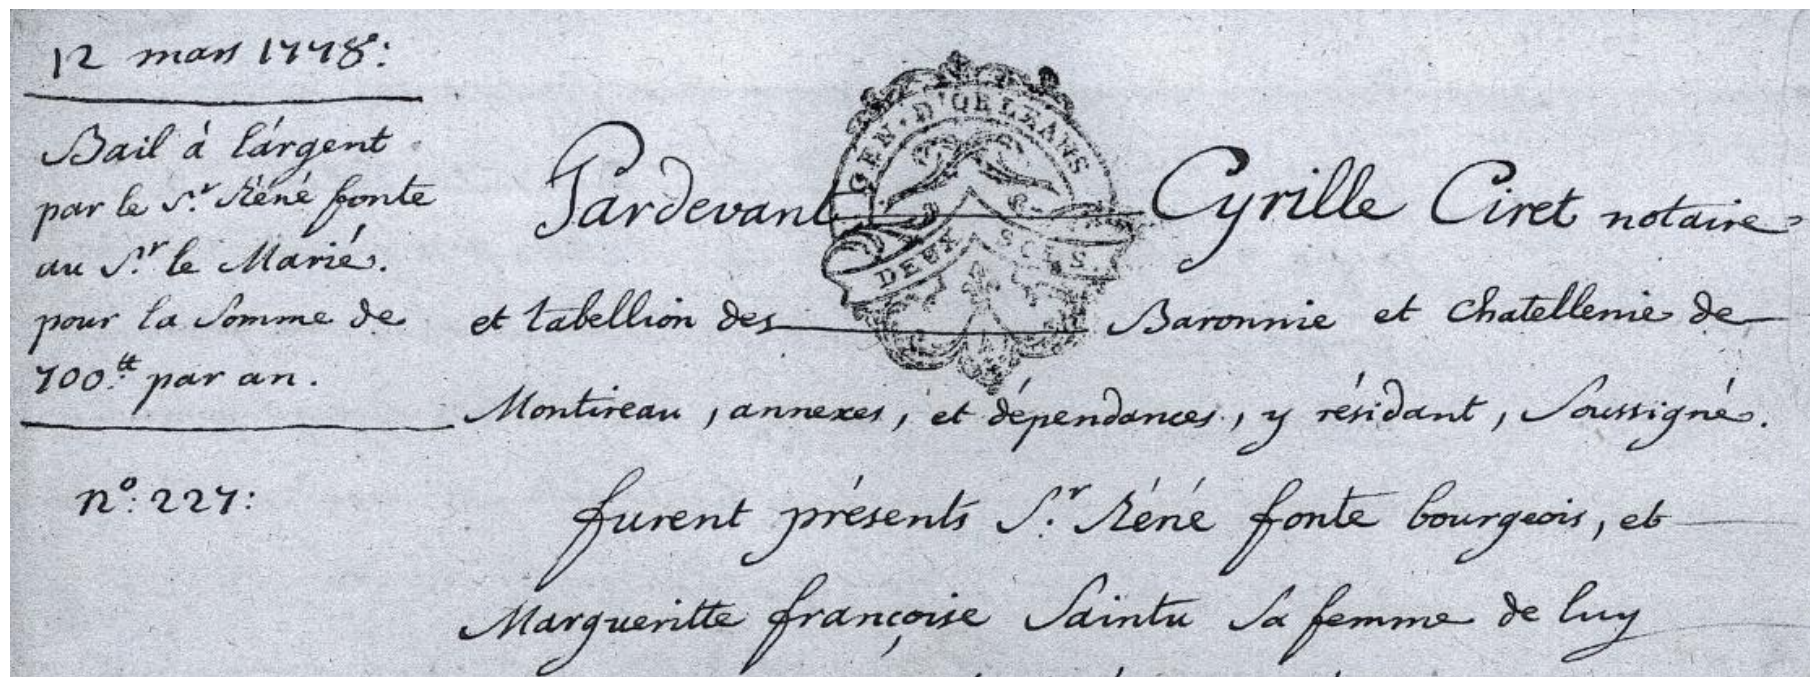 12 mars 1778:
Bail à l'argent
par le S.r Réné fonte
au S.r le Marié.
pour la Somme de
700.tt par an.
n.o: 227:
GEN. D'ORLEANS
DEUX SOLS.
Pardevant Cyrille Ciret notaire
et tabellion des Baronnie et Chatellenie de
Montireau, annexes, et dépendances, y résidant, Soussigné.
furent présents S.r Réné fonte bourgeois, et
Margueritte françoise Saintu Sa femme de luy